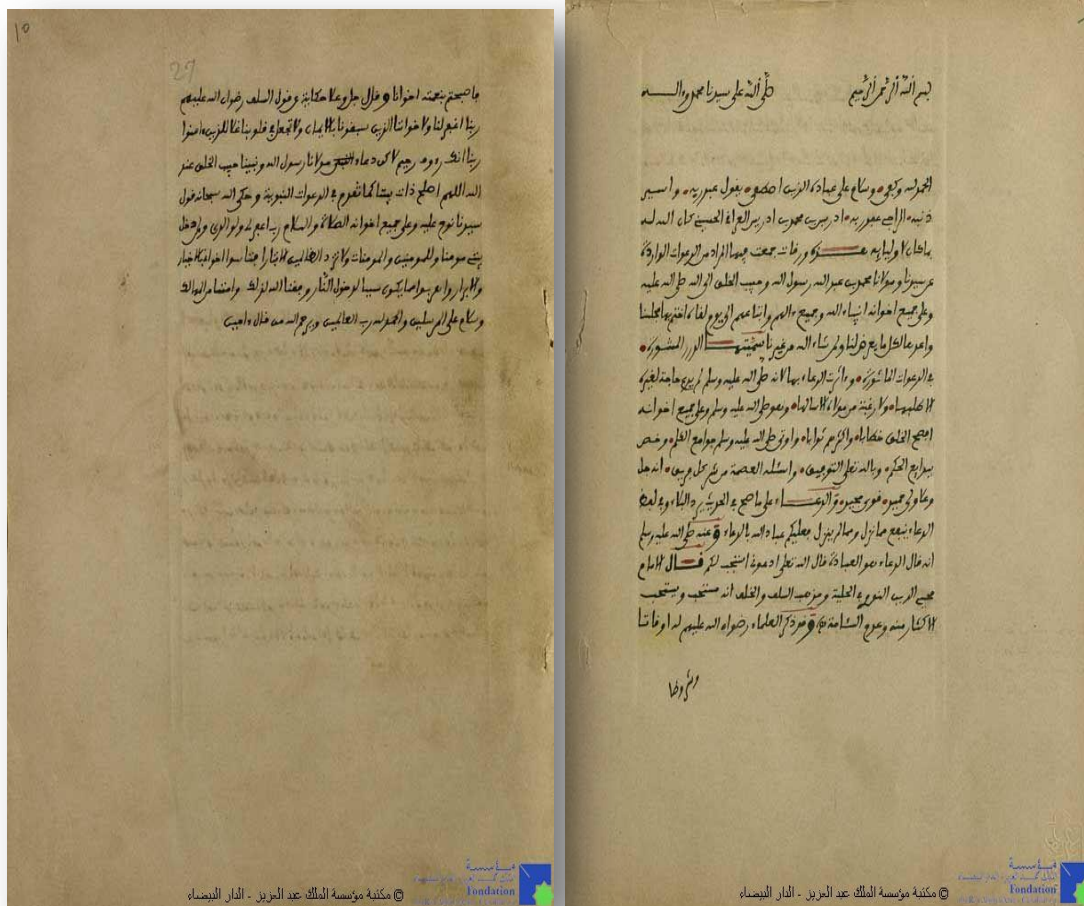 بسم الله الرحمن الرحيم صلى الله على سيدنا محمد وآله
الحمد لله وكفى وسلام على عباده الذين اصطفى يقول عبد ربه وأسير
ذنبه الراجي عفو ربه ادريس بن محمد بن ادريس العراقي الحسيني كان الله له
بما كان لأوليائه هذه ورقات جمعت فيها المراد من الدعوات الواردة
عن سيدنا ومولانا محمد بن عبد الله رسول الله وحبيب الخلق الى الله صلى الله عليه
وعلى جميع اخوانه انبياء الله وجميع الهم واتباعهم الى يوم لقاه
ولمن شاء الله من غيرنا سميتها الدرر المنثورة
في الدعوات الماثورة لانه صلى الله عليه وسلم لم يدع حاجة لغيره
الا طلبها ولا رغبة من مولاه الا سالها وهو صلى الله عليه وسلم وعلى جميع اخوانه
افصح الخلق خطابا واكثرهم ثوابا واوتي صلى الله عليه وسلم جوامع الكلم وخص
ببدايع الحكم وبالله تعالى التوفيق واسئله العصمة من شر كل فريق انه جل
وعلا ولي حميد قوي مجيد والدعاء على ما صح في الحديث يرد البلاء وفي لفظ
الدعاء ينفع مما نزل ومما لم ينزل فعليكم عباد الله بالدعاء وعنه صلى الله عليه وسلم
انه قال الدعاء هو العبادة قال الله تعلى ادعوني استجب لكم قال الامام
محيي الدين النووي في الحلية ومذهب السلف والخلف انه مستحب ويستحب
الاكثار منه وعدم السئامة وقد ذكر العلماء رضوان الله عليهم له اوقاتا
وشروطا
27
فاصبحتم بنعمته اخوانا وقال جل وعلا حكاية وقول السلف رضوان الله عليهم
ربنا اغفر لنا ولاخواننا الذين سبقونا بالايمان ولا تجعل في قلوبنا غلا للذين امنوا
ربنا انك رءوف رحيم مولانا رسول الله ونبينا حبيب الخلق عند
الله اللهم اصلح ذات بيننا كما تقدم في الدعوات النبوية وحكى الله سبحانه قول
سيدنا نوح عليه وعلى جميع اخوانه الصلاة والسلام رب اغفر لي ولوالدي ولمن دخل
بيتي مومنا وللمومنين والمومنات ولا تزد الظالمين الا تبارا
والابرار سببا لدخول النار
وسلام على المرسلين والحمد لله رب العالمين ويرحم الله من قال ءامين
© مكتبة مؤسسة الملك عبد العزيز - الدار البيضاء
مؤسسة
Fondation
© مكتبة مؤسسة الملك عبد العزيز - الدار البيضاء
مؤسسة
Fondation